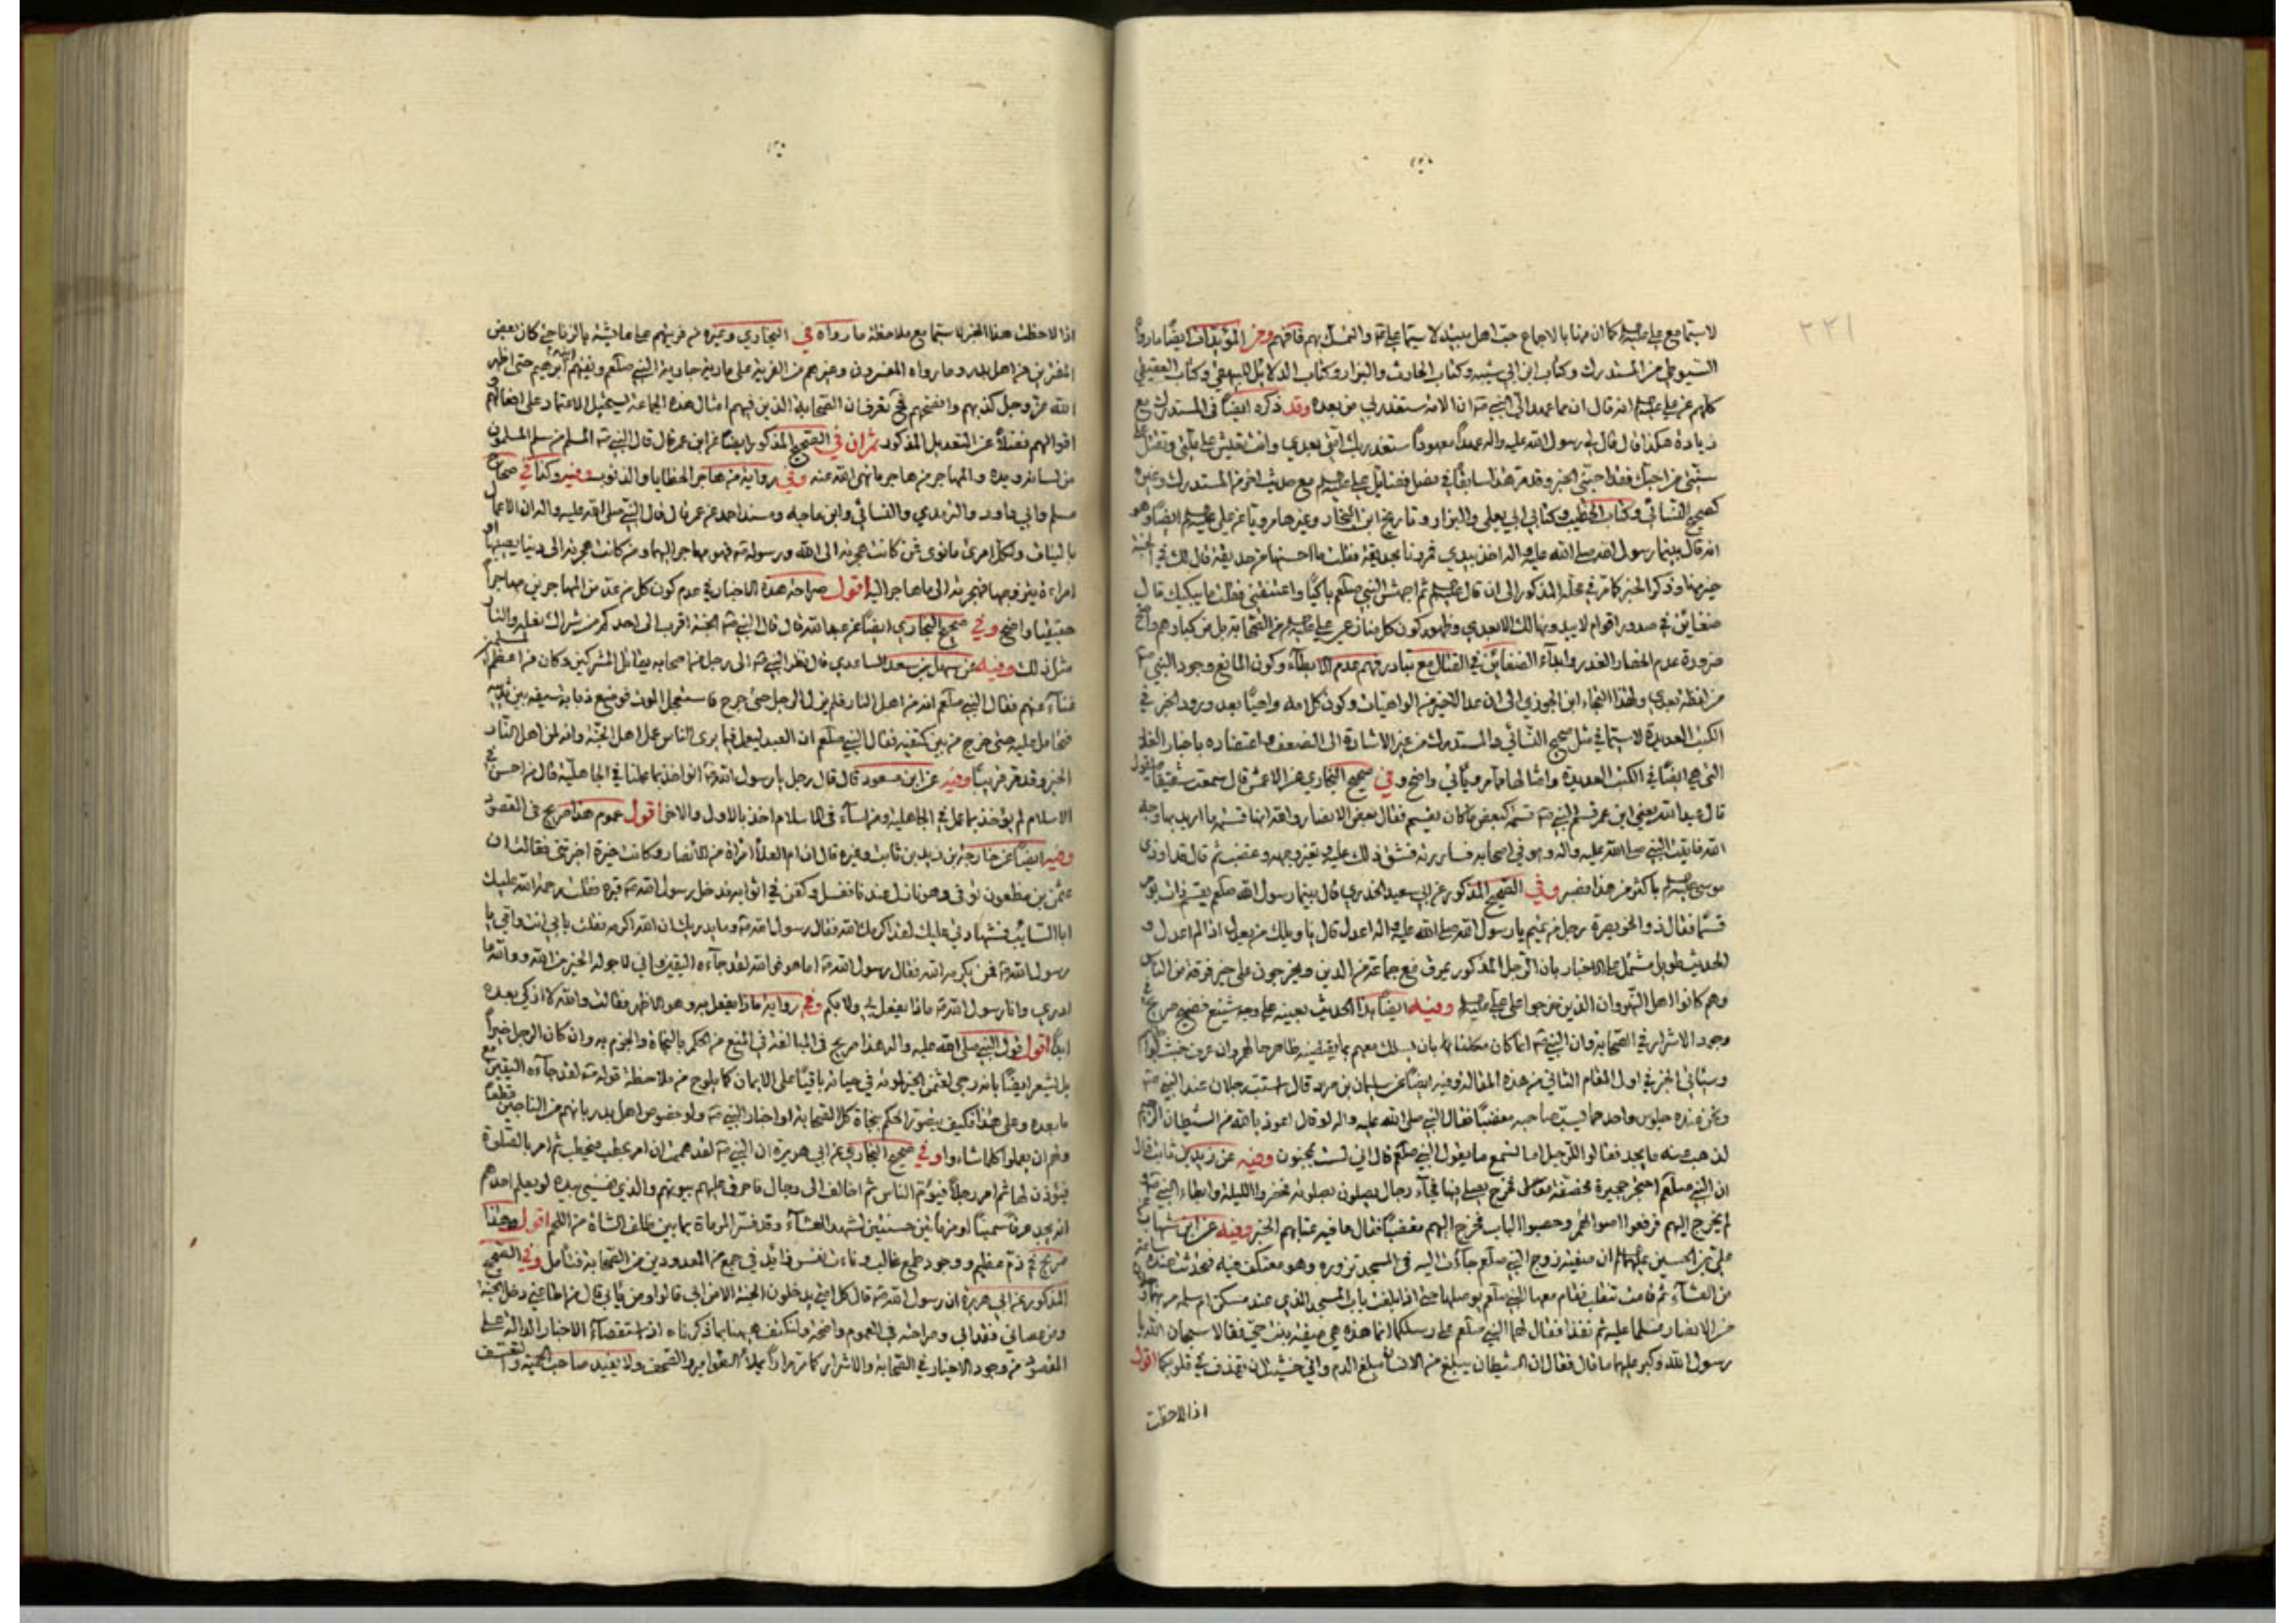 ٢٢١
لا سيما مع علي عليه السلام كما ان منها بالاجماع حب اهل بيته لا سيما علي والتمسك بهم فافهم ومن المؤيدات ايضا ما رواه
السيوطي من المستدرك وكتاب ابن ابي شيبه وكتاب الحارث والبزار وكتاب الدلائل للبيهقي وكتاب العقيلي
كلهم عن علي عليه السلام انه قال ان مما عهد الي النبي ص ان الامة ستغدر بي من بعده وقد ذكره ايضا في المستدرك مع
زيادة هكذا قال قال لي رسول الله صلى الله عليه واله عهدا معهودا ستغدر بك امتي بعدي وانت تعيش على ملتي وتقتل على
سنتي من احبك فقد احبني الخبر وقد مر هذا سابقا في فضل فضائل علي عليه السلام مع حديث اخر من المستدرك وغيره
كصحيح النسائي وكتاب الخطيب وكتابي ابي يعلى والبزار وتاريخ ابن النجار وغيرها مرويا عن علي عليه السلام ايضا وهو
انه قال بينما رسول الله صلى الله عليه واله اخذ بيدي فمررنا بحديقة فقلت ما احسنها من حديقة قال لك في الجنة
خير منها وذكر الخبر كما مر في محله المذكور الى ان قال عليه السلام ثم اجهش النبي صلعم باكيا واعتنقني فقلت ما يبكيك قال
ضغائن في صدور اقوام لا يبدونها لك الا بعدي وظهور كون كل من نازع علي عليه السلام من الصحابة بل من كبارهم واضح
ضرورة عدم انحصار الغدر وابداء الضغائن في القتال مع تبادر فهم عدم الابطاء وكون المانع وجود النبي ص
من لفظة بعدي ولهذا التجاء ابن الجوزي الى ان عد الاخير من الواهيات وكون كلامه واهيا بعد ورود الخبر في
الكتب العديدة لا سيما في مثل صحيح النسائي والمستدرك من غير الاشارة الى الضعف مع اعتضاده باخبار الغدر
التي هي ايضا في الكتب العديدة وامثالها مما مر وياتي واضح وفي صحيح البخاري عن الاعمش قال سمعت شقيقا يقول
قال عبد الله يعني ابن عمر قسم النبي ص قسمة كبعض ما كان يقسم فقال بعض الانصار والله انها قسمة ما اريد بها وجه
الله فاتيت النبي صلى الله عليه واله وهو في اصحابه فساررته فشق ذلك عليه وتغير وجهه وغضب ثم قال قد اوذي
موسى عليه السلم باكثر من هذا فصبر وفي الصحيح المذكور عن ابي سعيد الخدري قال بينما رسول الله صلعم يقسم ذات يوم
قسما فقال ذو الخويصرة رجل من تميم يا رسول الله صلى الله عليه واله اعدل قال يا ويلك من يعدل اذا لم اعدل و
الحديث طويل مشتمل على الاخبار بان الرجل المذكور يمرق مع جماعة من الدين ويخرجون على خير فرقة من الناس
وهم كانوا اهل النهروان الذين خرجوا على علي عليه السلم وفيه ايضا هذا الحديث بعينه على وجه شنيع فصيح صريح في
وجود الاشرار في الصحابة وان النبي ص انما كان مكلفا بان يسلك معهم بما يقتضيه ظاهر حالهم وان عرف خبث
وسياتي الخبر في اول المقام الثاني من هذه المقالة وفيه ايضا عن سليمان بن صرد قال استب رجلان عند النبي ص
ونحن عنده جلوس واحدهما يسب صاحبه مغضبا فقال النبي صلى الله عليه واله لو قال اعوذ بالله من الشيطان الرجيم
لذهب عنه ما يجد فقالوا للرجل اما تسمع ما يقول النبي صلعم قال اني لست بمجنون وفيه عن زيد بن ثابت قال
ان النبي صلعم احتجر حجيرة مخصفة فخرج يصلي فيها فجاء رجال يصلون بصلوته فحضروا الليلة وابطاء النبي ص
لم يخرج اليهم فرفعوا اصواتهم وحصبوا الباب فخرج اليهم مغضبا فقال ما فيه عتابهم الخبر وفيه عن ابن شهاب عن
علي بن الحسين عليهما السلام ان صفية زوج النبي صلعم جاءت اليه في المسجد تزوره وهو معتكف فيه فتحدثت عنده ساعة
من العشاء ثم قامت تنقلب فقام معها النبي صلعم يوصلها حتى اذا بلغت باب المسجد الذي عند مسكن ام سلمه مر بهما رجلان
من الانصار فسلما عليه ثم نفذا فقال لهما النبي صلعم على رسلكما انما هذه هي صفية بنت حيي فقالا سبحان الله يا
رسول الله وكبر عليهما ما قال فقال ان الشيطان يبلغ من الانسان مبلغ الدم واني خشيت ان يقذف في قلوبكما اقول
اذا لاحظت
اذا لاحظت هذا الخبر لا سيما مع ملاحظة ما رواه في البخاري وغيره من فريتهم على عائشة بالزنا حتى كان بعض
المفترين من اهل بدر وما رواه المفسرون وغيرهم من الفرية على مارية جارية النبي صلعم ونفيهم ابنه ابرهيم حتى اظهر
الله عز وجل كذبهم وافضحهم تعرف ان الصحابة الذين فيهم امثال هذه الجماعة يستحيل الاعتماد على افعالهم و
اقوالهم فضلا عن التعديل المذكور ثم ان في الصحيح المذكور ايضا عن ابن عمر قال قال النبي ص المسلم من سلم المسلمون
من لسانه ويده والمهاجر من هاجر ما نهى الله عنه وفي رواية من هاجر الخطايا والذنوب وفيه وكذا في صحاح
مسلم وابي داود والترمذي والنسائي وابن ماجه ومسند احمد عن عمر قال قال النبي صلى الله عليه واله ان الاعمال
بالنيات ولكل امرئ ما نوى فمن كانت هجرته الى الله ورسوله ص فهو مهاجر اليهما ومن كانت هجرته الى دنيا يصيبها او
امراءة يتزوجها فهجرته الى ما هاجر اليه اقول صراحة هذه الاخبار في عدم كون كل من عد من المهاجرين مهاجرا
حقيقيا واضح وفي صحيح البخاري ايضا عن عبد الله قال قال النبي ص الجنة اقرب الى احدكم من شراك نعله والنار
مثل ذلك وفيه عن سهل بن سعد الساعدي قال نظر النبي ص الى رجل من اصحابه يقاتل المشركين وكان من اعظم المسلمين
غناء عنهم فقال النبي صلعم انه من اهل النار فلم يزل الرجل حتى جرح فاستعجل الموت فوضع ذبابة سيفه بين ثدييه
فتحامل عليه حتى خرج من بين كتفيه فقال النبي صلعم ان العبد ليعمل فيما يرى الناس عمل اهل الجنة وانه لمن اهل النار
الخبر وقد مر قريبا وفيه عن ابن مسعود قال قال رجل يا رسول الله ص انواخذ بما عملنا في الجاهلية قال من احسن في
الاسلام لم يؤخذ بما عمل في الجاهلية ومن اساء في الاسلام اخذ بالاول والاخر اقول عموم هذا صريح في المقصود
وفيه ايضا عن خارجة بن زيد بن ثابت وغيره قال ان ام العلا امراة من الانصار وكانت خيرة اخبرتني فقالت ان
عثمن بن مظعون توفي وهو نازل عندنا فغسل وكفن في اثوابه فدخل رسول الله ص قبره فقلت رحمة الله عليك
ابا السايب فشهادتي عليك لقد اكرمك الله فقال رسول الله ص وما يدريك ان الله اكرمه فقلت بابي انت وامي يا
رسول الله ص فمن يكرمه الله فقال رسول الله ص اما هو فوالله لقد جاءه اليقين واني لارجو له الخير من الله ووالله ما
ادري وانا رسول الله ص ماذا يفعل بي ولا بكم وفي رواية ماذا يفعل به وهو الاظهر فقالت والله لا ازكي بعده
ابدا اقول قول النبي صلى الله عليه واله هذا صريح في المبالغة في المنع من الحكم بالنجاة والجزم به وان كان الرجل خيرا
بل يشعر ايضا بانه رجى لعثمن الخير لموته في حياته باقيا على الايمان كما يلوح من ملاحظة قوله ص لقد جاءه اليقين مع
ما بعده وعلى هذا فكيف يتصور الحكم بنجاة كل الصحابة او اخبار النبي ص ولو خصوص اهل بدر بانهم من الناجين قطعا
وان يعملوا كلما شاءوا وفي صحيح البخاري عن ابي هريرة ان النبي ص لقد هممت ان امر بحطب فيحطب ثم امر بالصلوة
فيؤذن لها ثم امر رجلا فيؤم الناس ثم اخالف الى رجال فاحرق عليهم بيوتهم والذي نفسي بيده لو يعلم احدهم
انه يجد عرقا سمينا او مرماتين حسنتين لشهد العشاء وقد فسر المرماة بما بين ظلف الشاة من اللحم اقول وهذا
صريح في ذم عظيم ووجود طمع غالب ودناءت نفس وذايل في جمع من المعدودين من الصحابة فتامل وفي الصحيح
المذكور عن ابي هريرة ان رسول الله ص قال كل امتي يدخلون الجنة الا من ابى قالوا ومن يابى قال من اطاعني دخل الجنة
ومن عصاني فقد ابى وصراحته في العموم واضحة ولنكتف ههنا بما ذكرناه اذ استقصاء الاخبار الدالة على
المقصود من وجود الاخيار في الصحابة والاشرار كما مر مرارا يملأ الطوامير والصحف ولا يفيد صاحب الحمية والتعسف